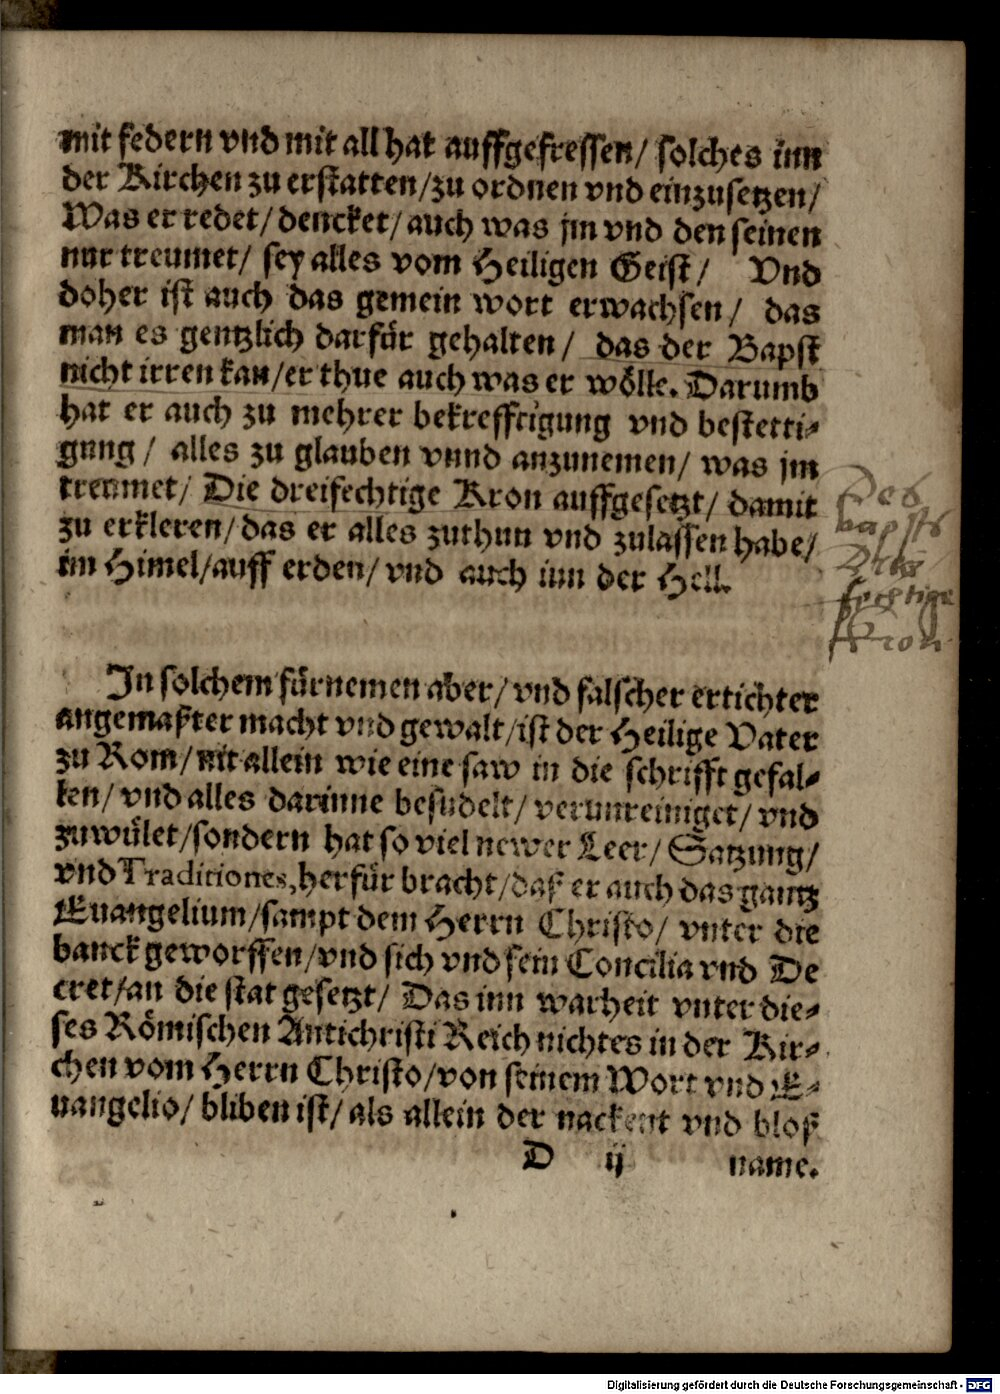 mit federn vnd mit all hat auffgefressen/ solches inn
der Kirchen zu erstatten/zu ordnen vnd einzusetzen/
Was er redet/ dencket/ auch was jm vnd den seinen
nur treumet/ sey alles vom Heiligen Geist/ Vnd
doher ist auch das gemein wort erwachsen/ das
man es gentzlich darfür gehalten/ das der Bapst
nicht irren kan/er thue auch was er wölle. Darumb
hat er auch zu mehrer bekrefftigung vnd bestetti-
gung/ alles zu glauben vnnd anzunemen/ was jm
treumet/ Die dreifechtige Kron auffgesetzt/ damit
zu erkleren/das er alles zuthun vnd zulassen habe/
im Himel/auff erden/ vnd auch inn der Hell.
Des
bapsts
Drey
fechtige
Kron
In solchem fürnemen aber/ vnd falscher ertichter
angemaster macht vnd gewalt/ist der Heilige Vater
zu Rom/ nit allein wie eine saw in die schrifft gefal-
len/ vnd alles darinne besudelt/ verunreiniget/ vnd
zuwület/sondern hat so viel newer Leer/ Satzung/
vnd Traditiones, herfür bracht/daß er auch das gantz
Euangelium/sampt dem Herrn Christo/ vnter die
banck geworffen/vnd sich vnd sein Concilia vnd De
cret/an die stat gesetzt/ Das inn warheit vnter die-
ses Römischen Antichristi Reich nichtes in der Kir-
chen vom Herrn Christo/von seinem Wort vnd E-
uangelio/ bliben ist/ als allein der nackent vnd bloß
D ij name.
Digitalisierung gefördert durch die Deutsche Forschungsgemeinschaft - DFG